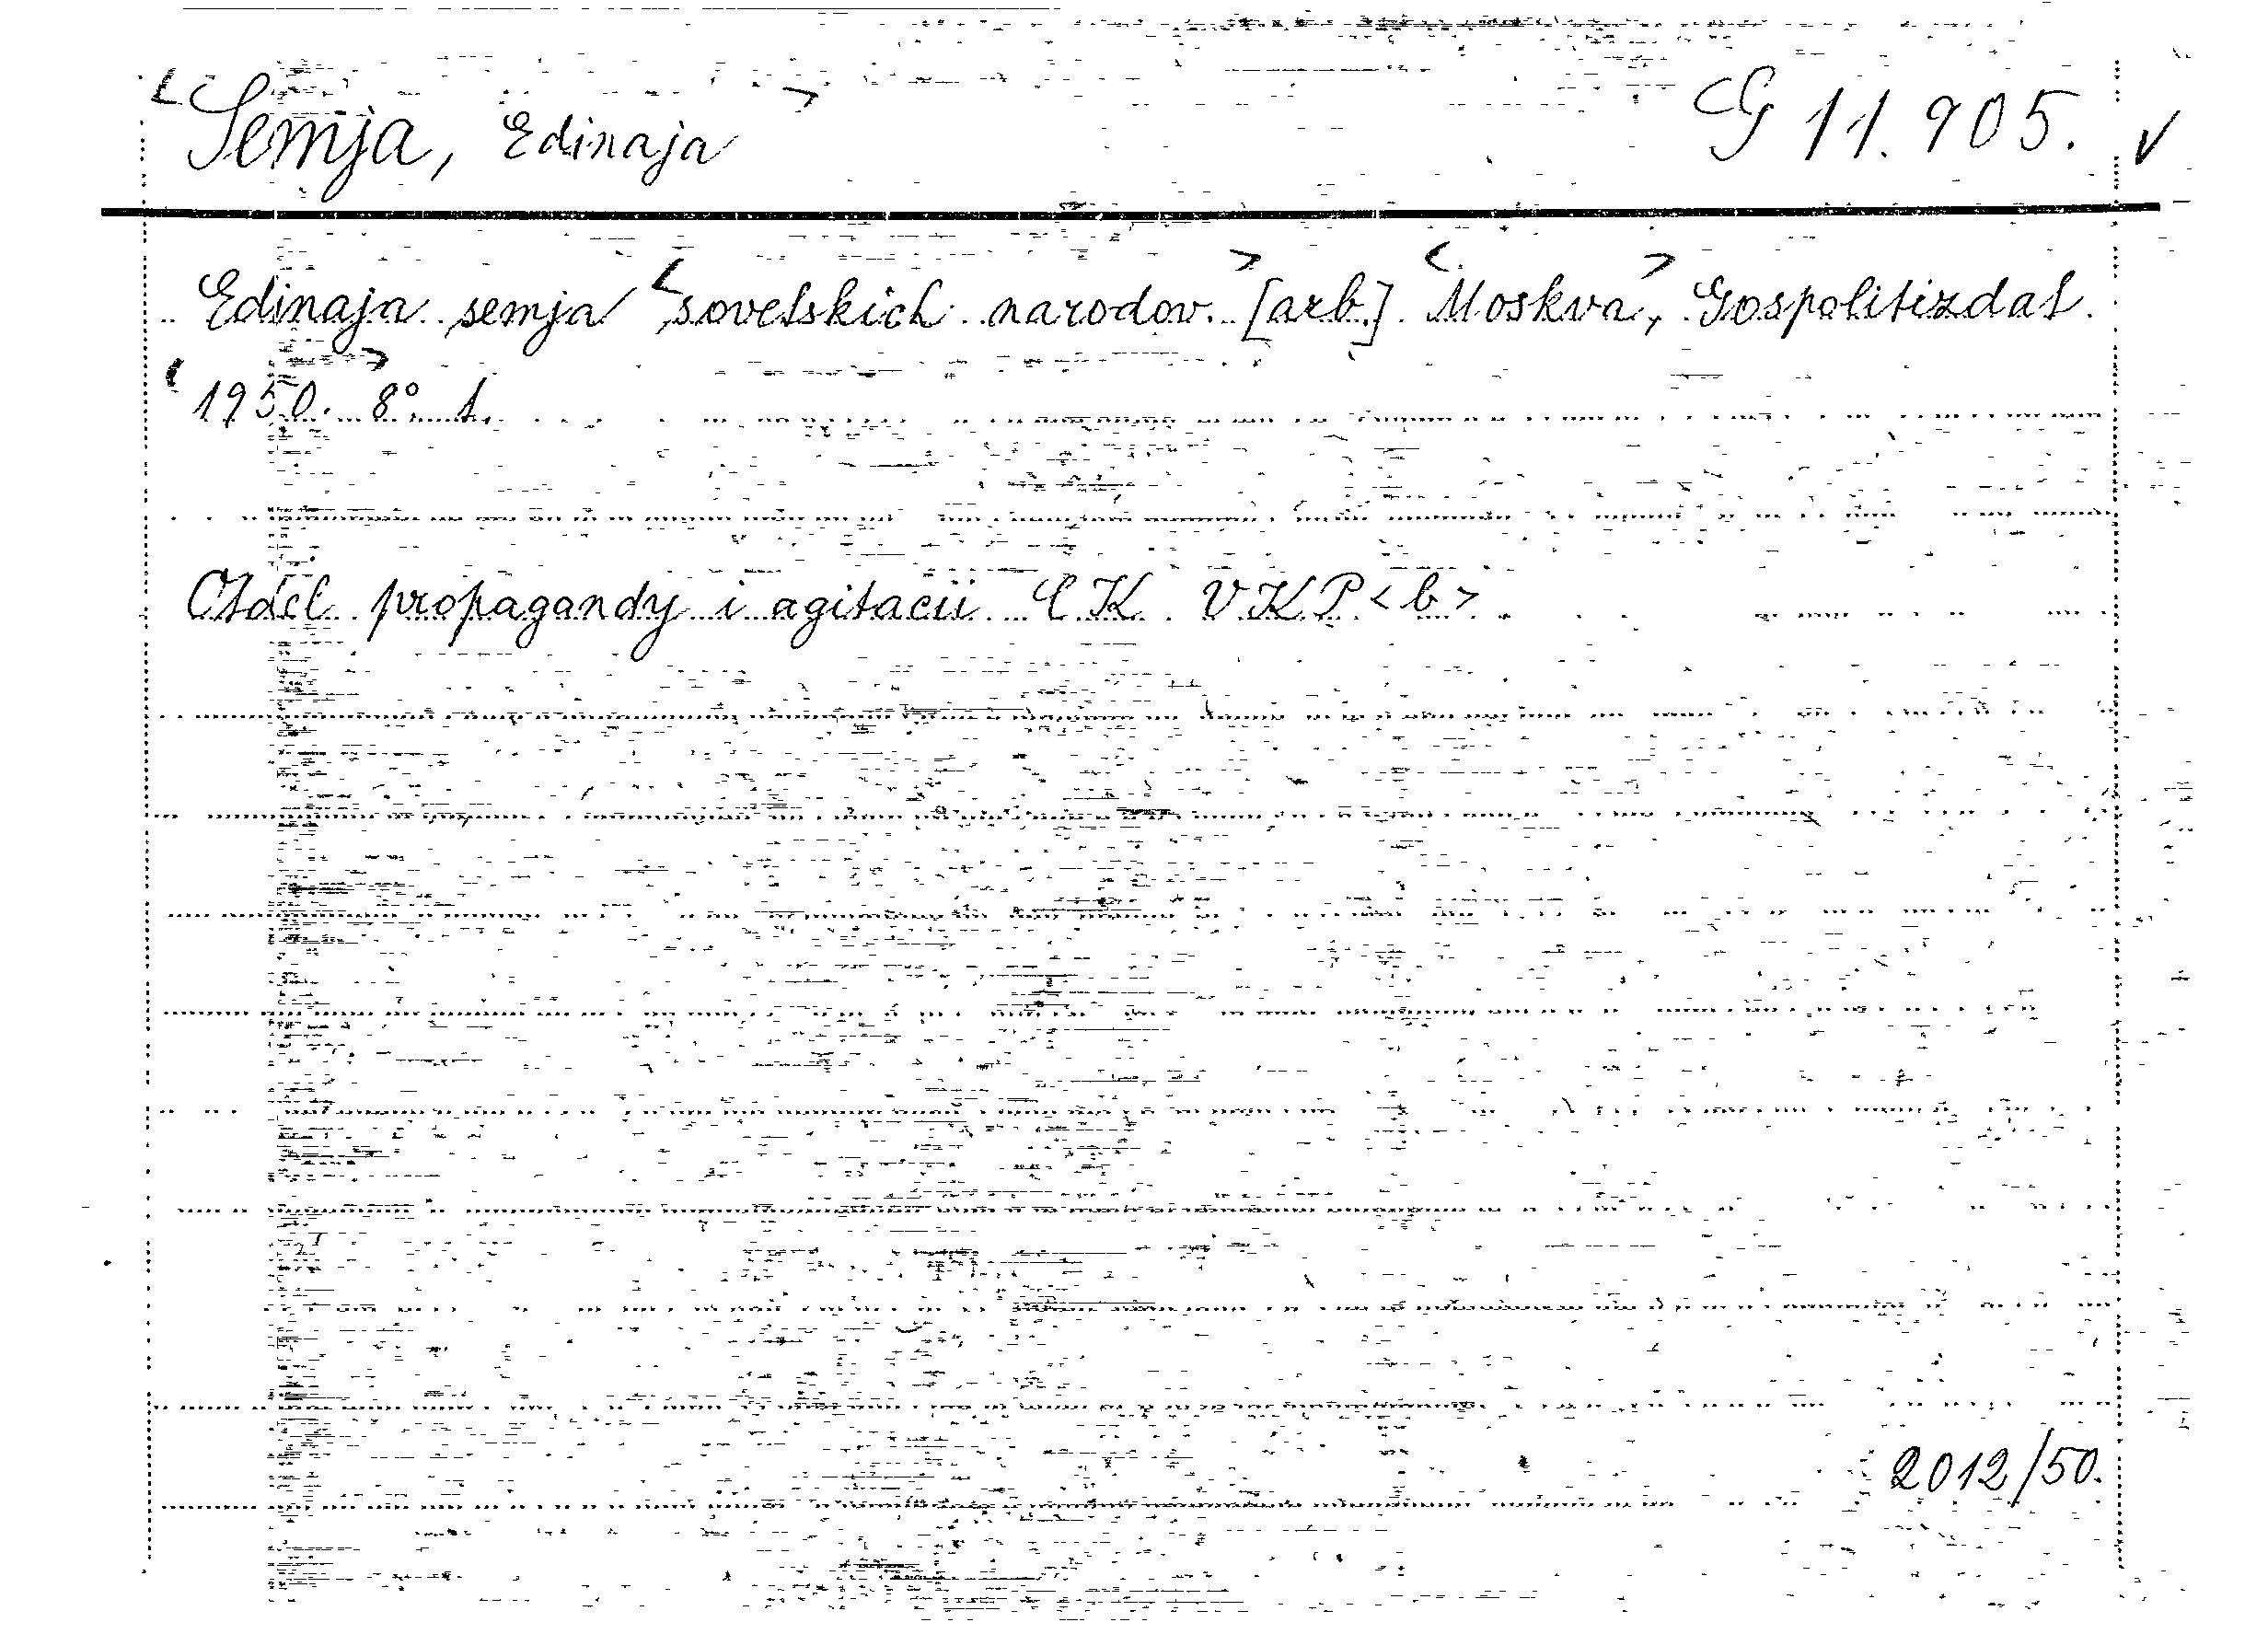 <Semja, Edinaja> G 11.905. ✓
Edinaja semja <sovetskich narodov.> [arb.] <Moskva,> Gospolitizdat.
<1950.> 8°. 1.
Otdel propagandy i agitacii CK VKP<b>.
2012/50.